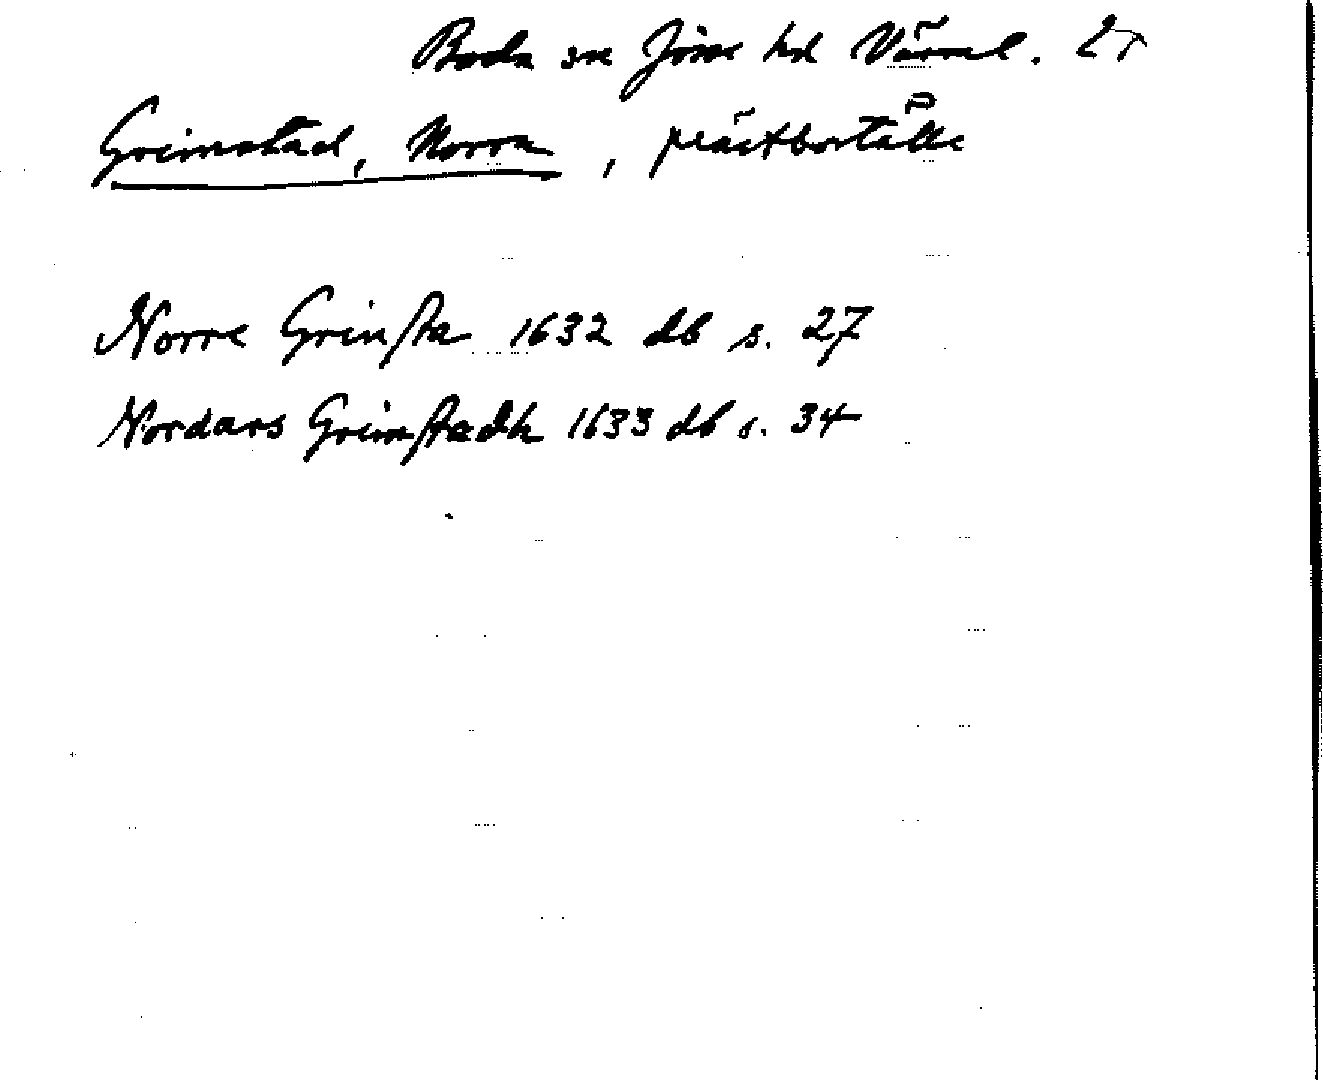 Boda sn Jösse hd Värml.
Grimstad, Norra, prästboställe
Norre Grinsta 1632 db s. 27
Nordars Grimstadh 1633 db s. 34